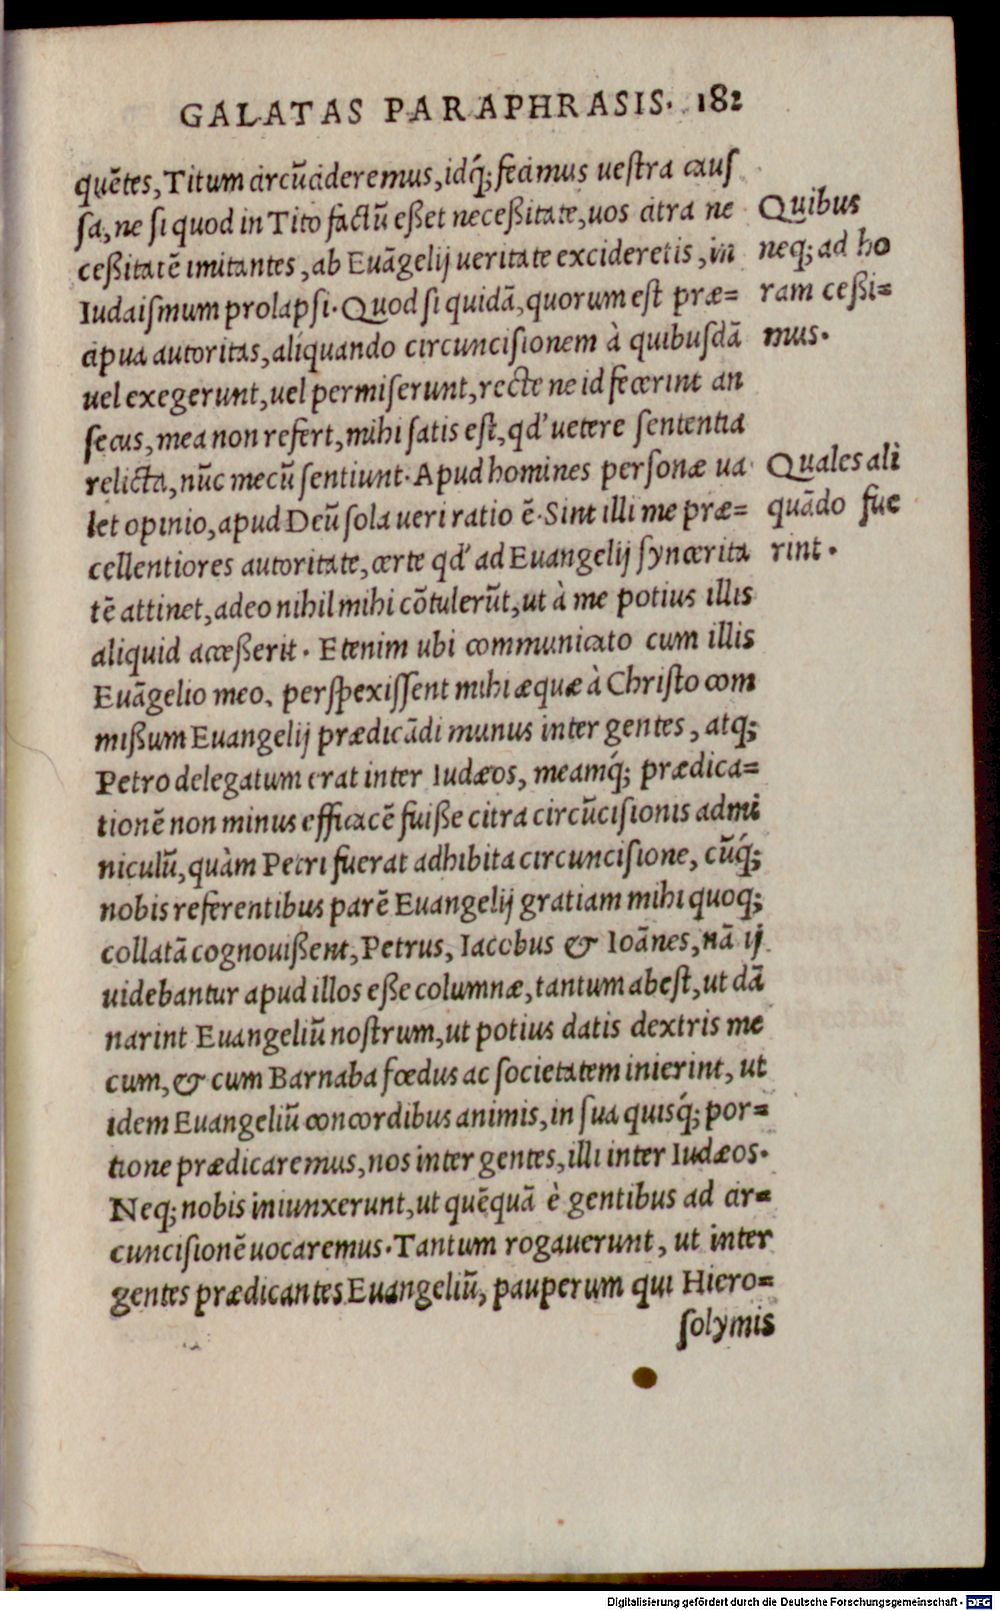 GALATAS PARAPHRASIS. 182
quẽtes, Titum circũcideremus, idq́; fecimus uestra caus
sa, ne si quod in Tito factũ eßet neceßitate, uos citra ne
ceßitatẽ imitantes, ab Euãgelij ueritate excideretis, in
Iudaismum prolapsi. Quod si quidã, quorum est præ=
cipua autoritas, aliquando circuncisionem à quibusdã
uel exegerunt, uel permiserunt, recte ne id fecerint an
secus, mea non refert, mihi satis est, qd' uetere sententia
relicta, nũc mecũ sentiunt. Apud homines personæ ua
let opinio, apud Deũ sola ueri ratio ẽ. Sint illi me præ=
cellentiores autoritate, certe qd' ad Euangelij syncerita
tẽ attinet, adeo nihil mihi cõtulerũt, ut à me potius illis
aliquid acceßerit. Etenim ubi communicato cum illis
Euãgelio meo, perspexissent mihi æque à Christo com
mißum Euangelij prædicãdi munus inter gentes, atq;
Petro delegatum erat inter Iudæos, meamq́; prædica=
tionẽ non minus efficacẽ fuiße citra circũcisionis admi
niculũ, quàm Petri fuerat adhibita circuncisione, cũq́;
nobis referentibus parẽ Euangelij gratiam mihi quoq;
collatã cognouißent, Petrus, Iacobus & Ioãnes, nã ij
uidebantur apud illos eße columnæ, tantum abest, ut dã
narint Euangeliũ nostrum, ut potius datis dextris me
cum, & cum Barnaba fœdus ac societatem inierint, ut
idem Euangeliũ concordibus animis, in sua quisq́; por=
tione prædicaremus, nos inter gentes, illi inter Iudæos.
Neq; nobis iniunxerunt, ut quẽquã è gentibus ad cir=
cuncisionẽ uocaremus. Tantum rogauerunt, ut inter
gentes prædicantes Euangeliũ, pauperum qui Hiero=
solymis
Quibus
neq; ad ho
ram ceßi=
mus.
Quales ali
quãdo fue
rint.
Digitalisierung gefördert durch die Deutsche Forschungsgemeinschaft - DFG